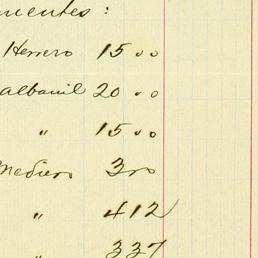 nuentes:
Herrero 15.00
albanil 20.00
" 15.00
Mediero 300
" 412
" 337